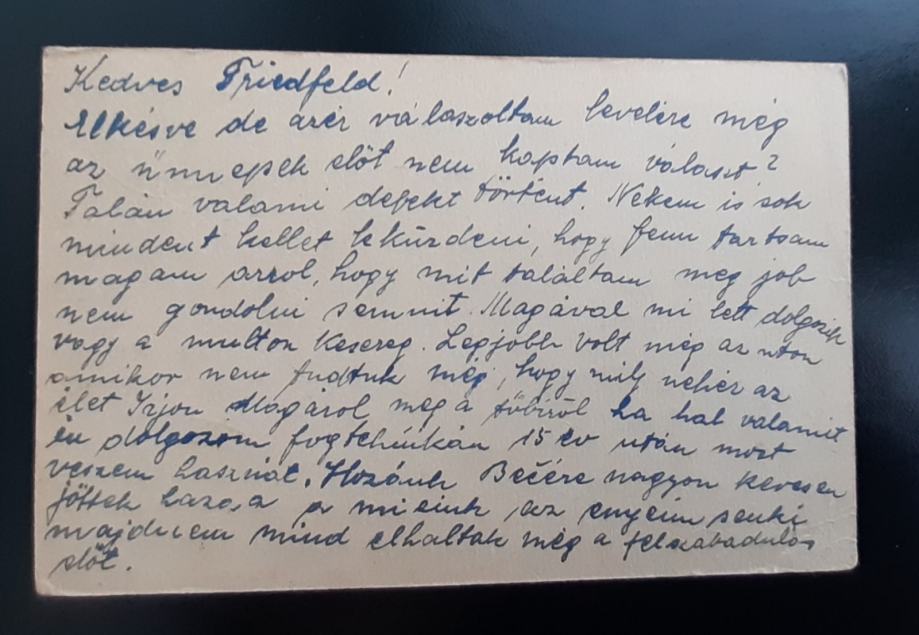 Kedves Friedfeld!
Elkésve de azér válaszoltam levelére még
az ünnepek elöt nem kaptam választ?
Talán valami defekt történt. Nekem is sok
mindent kellet leküzdeni, hogy fenn tartsam
magam arrol, hogy mit találtam meg job
nem gondolni semmit. Magával mi lett dolgozik
vagy a multon kesereg. Legjobb volt még az uton
amikor nem tudtuk még, hogy mily nehéz az
élet Irjon Magárol meg a töbiröl ha hal valamit
én dolgozom fogtehnikán 15 év után most
veszem hasznát. Hozánk Bečére nagyon kevesen
jöttek haza, a mieink az enyéim senki
majdnem mind elhaltak még a felszabadulás
elöt.